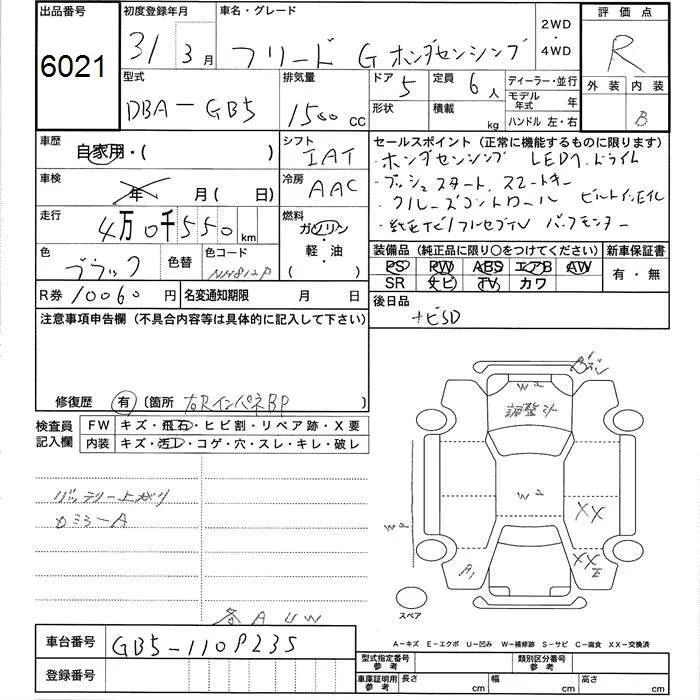 出品番号 初度登録年月 車名・グレード 2WD・4WD 評価点
6021 31 3月 フリード G ホンダセンシング R
型式 排気量 ドア 5 定員 6人 ディーラー・並行 外装 内装
DBA-GB5 1500 CC 形状 積載 kg モデル年式 年 B
ハンドル 左・右
車歴 自家用・( ) シフト IAT セールスポイント(正常に機能するものに限ります)
・ホンダセンシング LEDヘッドライト
車検 年 月(日) 冷房 AAC ・プッシュスタート スマートキー
・クルーズコントロール ビルトインETC
走行 4万0千550 km 燃料 ガソリン・軽・油 ( ) ・純正ナビ/フルセグTV バックモニター
色 ブラック 色替 色コード NH812P 装備品(純正品に限り○をつけてください) 新車保証書
PS PW ABS エアB AW 有・無
SR ナビ TV カワ
R券 10060円 名変通知期限 月 日 後日品
ナビSD
注意事項申告欄(不具合内容等は具体的に記入して下さい)
修復歴 有 (箇所 右Rインパネ BP
検査員記入欄 FW キズ・飛石・ヒビ割・リペア跡・X要
内装 キズ・汚レ・コゲ・穴・スレ・キレ・破レ
バッテリー上がり
カミラーA
各A U W
W2
調整升
W2
XX
XX
A1
スペア
A-キズ E-エクボ U-凹み W-補修跡 S-サビ C-腐食 XX-交換済
車台番号 GB5-110P235
登録番号
型式指定番号 参考 類別区分番号 参考
車庫証明用 参考 長さ cm 幅 cm 高さ cm